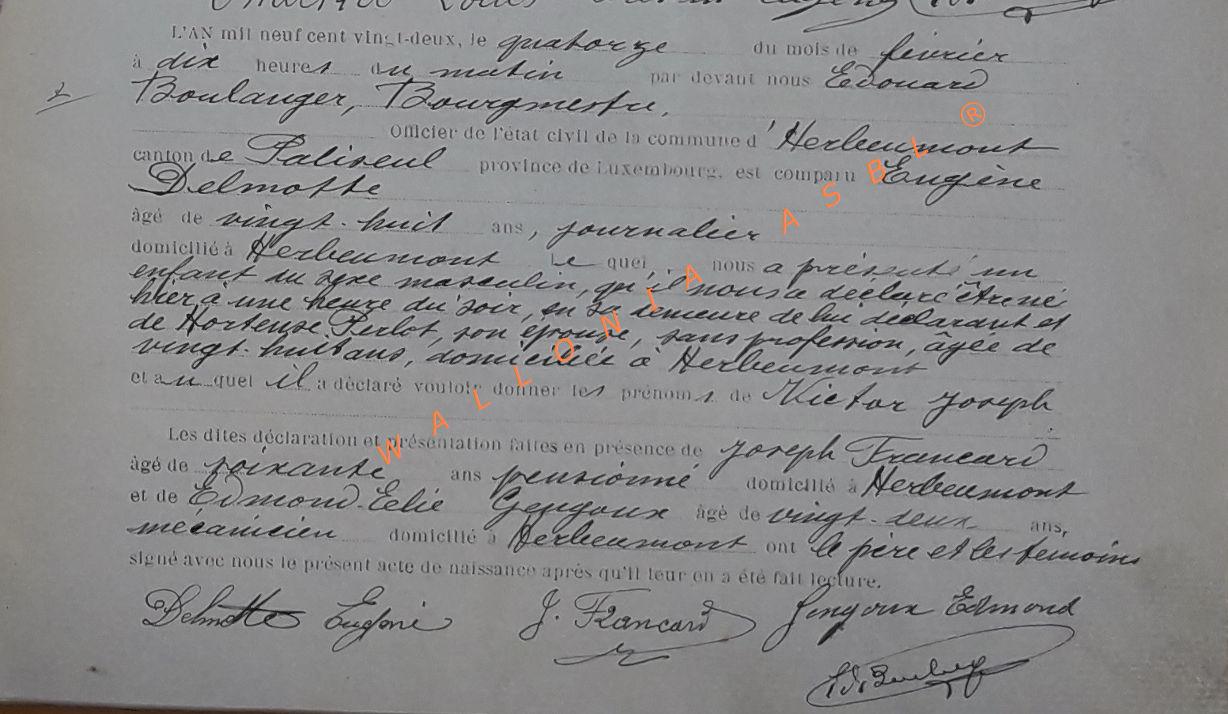 L'AN mil neuf cent vingt-deux, le quatorze du mois de février
à dix heures du matin par devant nous Edouard
Boulanger, Bourgmestre,
Officier de l'état civil de la commune d'Herbeumont
canton de Paliseul province de Luxembourg, est comparu Eugène
Delmotte
âgé de vingt-huit ans, journalier
domicilié à Herbeumont Le quel nous a présenté un
enfant du sexe masculin, qu'il nous a déclaré être né
hier à une heure du soir, en sa demeure de lui déclarant et
de Hortense Perlot, son épouse, sans profession, âgée de
vingt-huit ans, domiciliée à Herbeumont
et au quel il a déclaré vouloir donner les prénoms de Victor Joseph
Les dites déclaration et présentation faites en présence de Joseph Francard
âgé de soixante ans pensionné domicilié à Herbeumont
et de Edmond-Elie Gengoux âgé de vingt-deux ans,
mécanicien domicilié à Herbeumont ont le père et les témoins
signé avec nous le présent acte de naissance après qu'il leur en a été fait lecture.
Delmotte Eugène J. Francard Gengoux Edmond
Ed. Boulanger
WALLONIA ASBL ®